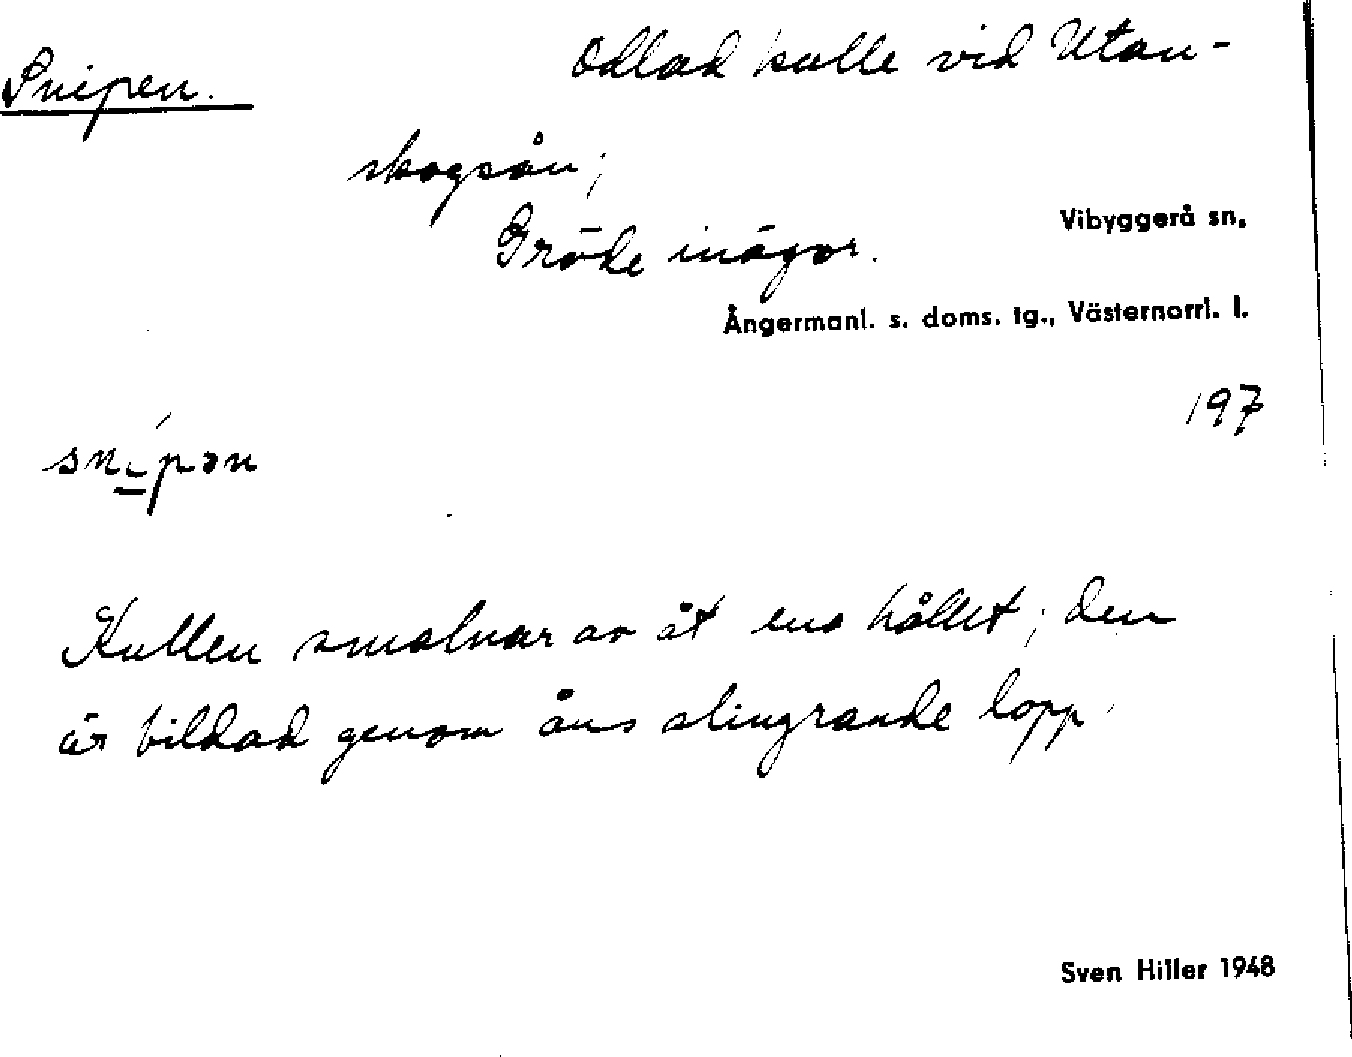 Snipen.
Odlad kulle vid Utan-
skogsån;
Gröde inägor.
Vibyggerå sn.
Ångermanl. s. doms. tg., Västernorrl. l.
197
sní̲pən
Kullen smalnar av åt ena hållet; den
är bildad genom åns slingrande lopp.
Sven Hiller 1948